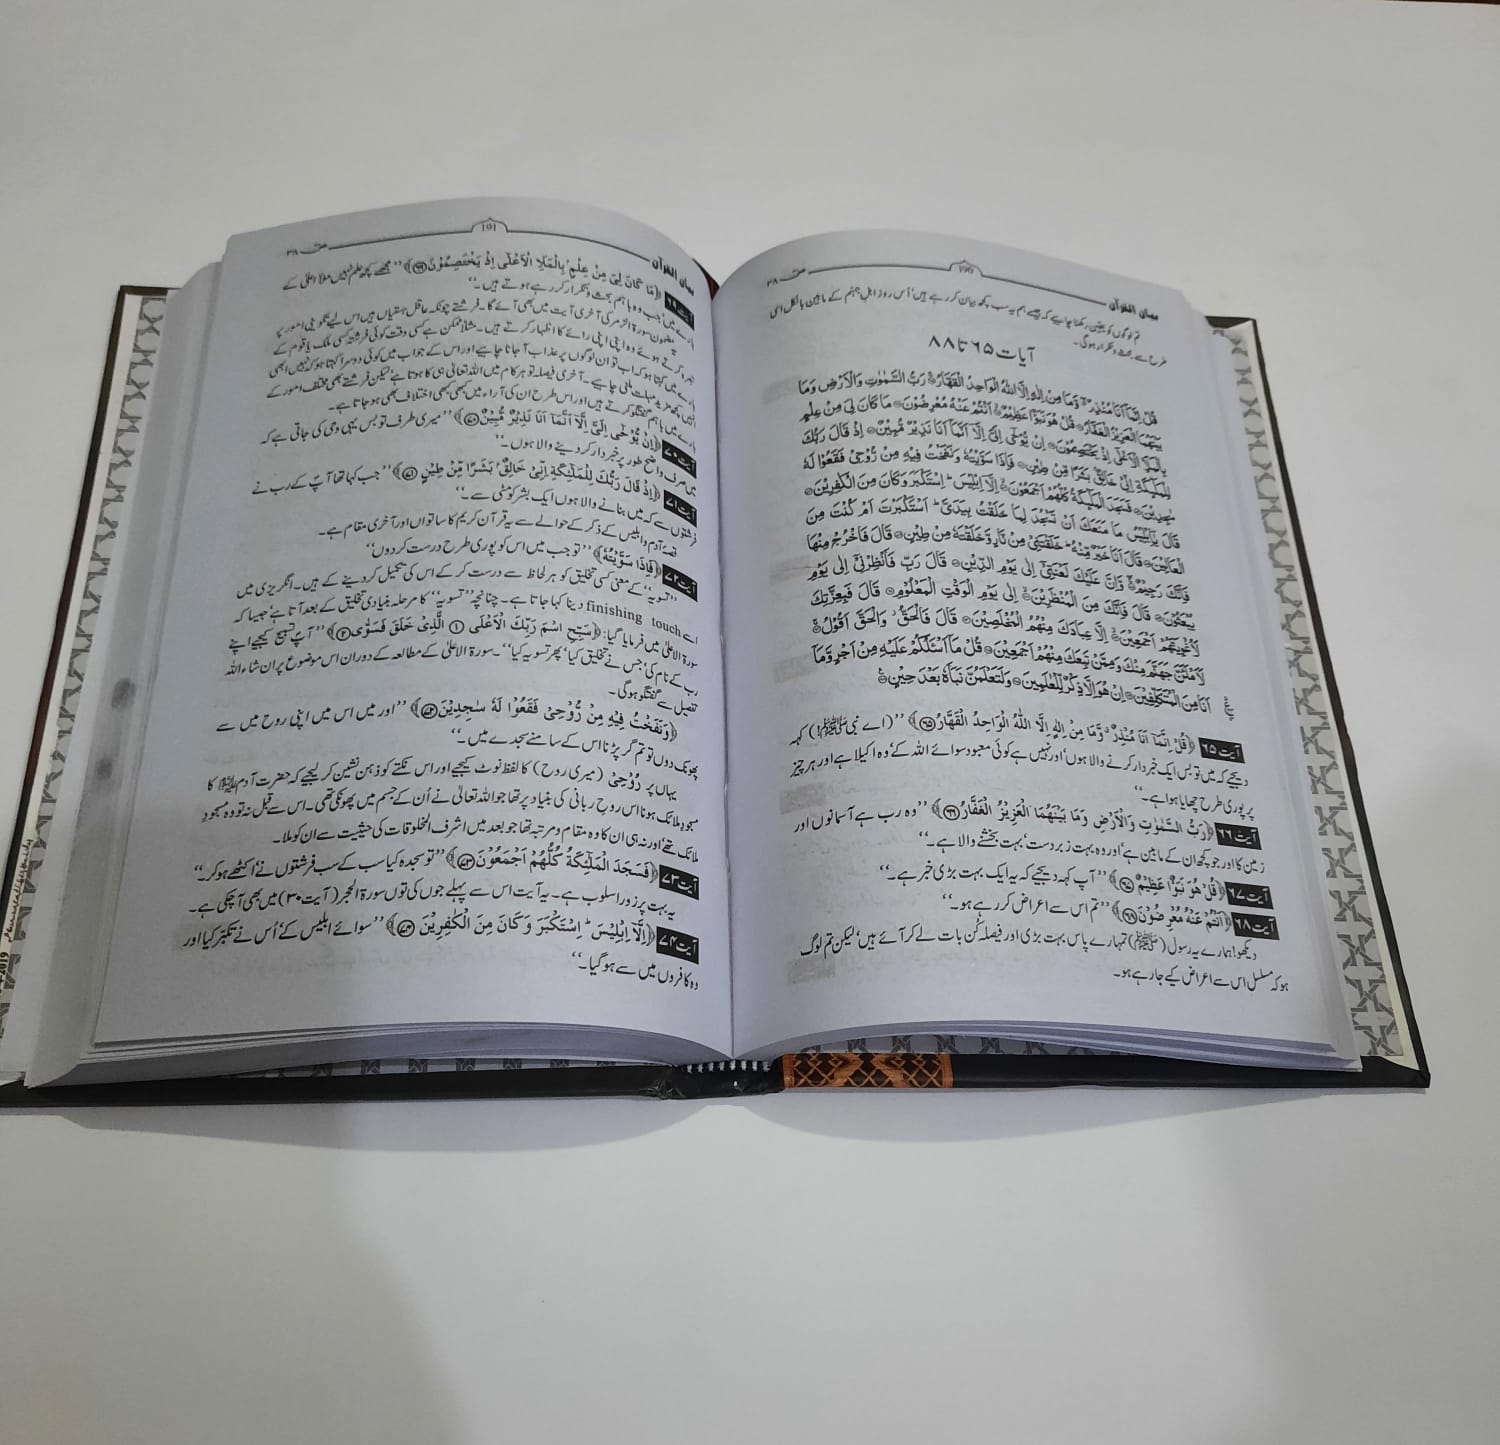 بیان القرآن
190
صٓ ۳۸
تم لوگوں کو یقین رکھنا چاہیے کہ جیسے ہم یہ سب کچھ بیان کر رہے ہیں‘ اُس روز اہلِ جہنم کے مابین بالکل اسی
طرح سے بحث و تکرار ہوگی۔
آیات ۶۵ تا ۸۸
قُلۡ اِنَّمَاۤ اَنَا مُنۡذِرٌ ٭ۖ وَّمَا مِنۡ اِلٰہٍ اِلَّا اللّٰہُ الۡوَاحِدُ الۡقَہَّارُ ﴿ۚ۶۵﴾ رَبُّ السَّمٰوٰتِ وَالۡاَرۡضِ وَمَا
بَیۡنَہُمَا الۡعَزِیۡزُ الۡغَفَّارُ ﴿۶۶﴾ قُلۡ ہُوَ نَبَؤٌا عَظِیۡمٌ ﴿ۙ۶۷﴾ اَنۡتُمۡ عَنۡہُ مُعۡرِضُوۡنَ ﴿۶۸﴾ مَا کَانَ لِیَ مِنۡ عِلۡمٍۭ
بِالۡمَلَاِ الۡاَعۡلٰۤی اِذۡ یَخۡتَصِمُوۡنَ ﴿۶۹﴾ اِنۡ یُّوۡحٰۤی اِلَیَّ اِلَّاۤ اَنَّمَاۤ اَنَا نَذِیۡرٌ مُّبِیۡنٌ ﴿۷۰﴾ اِذۡ قَالَ رَبُّکَ
لِلۡمَلٰٓئِکَۃِ اِنِّیۡ خَالِقٌۢ بَشَرًا مِّنۡ طِیۡنٍ ﴿۷۱﴾ فَاِذَا سَوَّیۡتُہٗ وَنَفَخۡتُ فِیۡہِ مِنۡ رُّوۡحِیۡ فَقَعُوۡا لَہٗ
سٰجِدِیۡنَ ﴿۷۲﴾ فَسَجَدَ الۡمَلٰٓئِکَۃُ کُلُّہُمۡ اَجۡمَعُوۡنَ ﴿ۙ۷۳﴾ اِلَّاۤ اِبۡلِیۡسَ ؕ اِسۡتَکۡبَرَ وَکَانَ مِنَ الۡکٰفِرِیۡنَ ﴿۷۴﴾
قَالَ یٰۤاِبۡلِیۡسُ مَا مَنَعَکَ اَنۡ تَسۡجُدَ لِمَا خَلَقۡتُ بِیَدَیَّ ؕ اَسۡتَکۡبَرۡتَ اَمۡ کُنۡتَ مِنَ
الۡعَالِیۡنَ ﴿۷۵﴾ قَالَ اَنَا خَیۡرٌ مِّنۡہُ ؕ خَلَقۡتَنِیۡ مِنۡ نَّارٍ وَّخَلَقۡتَہٗ مِنۡ طِیۡنٍ ﴿۷۶﴾ قَالَ فَاخۡرُجۡ مِنۡہَا
فَاِنَّکَ رَجِیۡمٌ ﴿ۚۖ۷۷﴾ وَّاِنَّ عَلَیۡکَ لَعۡنَتِیۡۤ اِلٰی یَوۡمِ الدِّیۡنِ ﴿۷۸﴾ قَالَ رَبِّ فَاَنۡظِرۡنِیۡۤ اِلٰی یَوۡمِ
یُبۡعَثُوۡنَ ﴿۷۹﴾ قَالَ فَاِنَّکَ مِنَ الۡمُنۡظَرِیۡنَ ﴿ۙ۸۰﴾ اِلٰی یَوۡمِ الۡوَقۡتِ الۡمَعۡلُوۡمِ ﴿۸۱﴾ قَالَ فَبِعِزَّتِکَ
لَاُغۡوِیَنَّہُمۡ اَجۡمَعِیۡنَ ﴿ۙ۸۲﴾ اِلَّا عِبَادَکَ مِنۡہُمُ الۡمُخۡلَصِیۡنَ ﴿۸۳﴾ قَالَ فَالۡحَقُّ ۫ وَالۡحَقَّ اَقُوۡلُ ﴿ۚ۸۴﴾
لَاَمۡلَـَٔنَّ جَہَنَّمَ مِنۡکَ وَمِمَّنۡ تَبِعَکَ مِنۡہُمۡ اَجۡمَعِیۡنَ ﴿۸۵﴾ قُلۡ مَاۤ اَسۡـَٔلُکُمۡ عَلَیۡہِ مِنۡ اَجۡرٍ وَّمَاۤ
اَنَا مِنَ الۡمُتَکَلِّفِیۡنَ ﴿۸۶﴾ اِنۡ ہُوَ اِلَّا ذِکۡرٌ لِّلۡعٰلَمِیۡنَ ﴿۸۷﴾ وَلَتَعۡلَمُنَّ نَبَاَہٗ بَعۡدَ حِیۡنٍ ﴿۸۸﴾
آیت ۶۵ ﴿قُلۡ اِنَّمَاۤ اَنَا مُنۡذِرٌ ٭ۖ وَّمَا مِنۡ اِلٰہٍ اِلَّا اللّٰہُ الۡوَاحِدُ الۡقَہَّارُ ۶۵﴾ ’’(اے نبی ﷺ!) کہہ
دیجیے کہ میں تو بس ایک خبردار کرنے والا ہوں‘ اور نہیں ہے کوئی معبود سوائے اللہ کے‘ وہ اکیلا ہے اور ہر چیز
پر پوری طرح چھایا ہوا ہے۔‘‘
آیت ۶۶ ﴿رَبُّ السَّمٰوٰتِ وَالۡاَرۡضِ وَمَا بَیۡنَہُمَا الۡعَزِیۡزُ الۡغَفَّارُ ۶۶﴾ ’’وہ رب ہے آسمانوں اور
زمین کا اور جو کچھ ان کے مابین ہے‘ اور وہ بہت زبردست‘ بہت بخشنے والا ہے۔‘‘
آیت ۶۷ ﴿قُلۡ ہُوَ نَبَؤٌا عَظِیۡمٌ ۶۷﴾ ’’آپ کہہ دیجیے کہ یہ ایک بہت بڑی خبر ہے۔‘‘
آیت ۶۸ ﴿اَنۡتُمۡ عَنۡہُ مُعۡرِضُوۡنَ ۶۸﴾ ’’تم اس سے اعراض کر رہے ہو۔‘‘
دیکھو! ہمارے یہ رسول (ﷺ) تمہارے پاس بہت بڑی اور فیصلہ کُن بات لے کر آئے ہیں‘ لیکن تم لوگ
ہو کہ مسلسل اس سے اعراض کیے جا رہے ہو۔
بیان القرآن
191
صٓ ۳۸
آیت ۶۹ ﴿مَا کَانَ لِیَ مِنۡ عِلۡمٍۭ بِالۡمَلَاِ الۡاَعۡلٰۤی اِذۡ یَخۡتَصِمُوۡنَ ۶۹﴾ ’’مجھے کچھ علم نہیں ملأ اعلیٰ کے
بارے میں‘ جب وہ باہم بحث و تکرار کر رہے ہوتے ہیں۔‘‘
یہ مضمون سورۃ الزمر کی آخری آیت میں بھی آئے گا۔ فرشتے چونکہ عاقل ہستیاں ہیں اس لیے تکوینی امور پر
تبصرہ کرتے ہوئے وہ اپنی اپنی رائے کا اظہار کرتے ہیں۔ مثلاً ممکن ہے کسی وقت کوئی فرشتہ کسی ملک یا قوم کے
بارے میں کہتا ہو کہ اب تو ان لوگوں پر عذاب آ جانا چاہیے اور اس کے جواب میں کوئی دوسرا کہتا ہو کہ نہیں ابھی
انہیں کچھ مزید مہلت ملنی چاہیے۔ آخری فیصلہ تو ہر کام میں اللہ تعالیٰ ہی کا ہوتا ہے‘ لیکن فرشتے بھی مختلف امور کے
بارے میں باہم گفتگو کرتے ہیں اور اس طرح ان کی آراء میں کبھی کبھی اختلاف بھی ہو جاتا ہے۔
آیت ۷۰ ﴿اِنۡ یُّوۡحٰۤی اِلَیَّ اِلَّاۤ اَنَّمَاۤ اَنَا نَذِیۡرٌ مُّبِیۡنٌ ۷۰﴾ ’’میری طرف تو بس یہی وحی کی جاتی ہے کہ
میں صرف واضح طور پر خبردار کر دینے والا ہوں۔‘‘
آیت ۷۱ ﴿اِذۡ قَالَ رَبُّکَ لِلۡمَلٰٓئِکَۃِ اِنِّیۡ خَالِقٌۢ بَشَرًا مِّنۡ طِیۡنٍ ۷۱﴾ ’’جب کہا تھا آپؐ کے رب نے
فرشتوں سے کہ میں بنانے والا ہوں ایک بشر کو مٹی سے۔‘‘
قصۂ آدم و ابلیس کے ذکر کے حوالے سے یہ قرآن کریم کا ساتواں اور آخری مقام ہے۔
آیت ۷۲ ﴿فَاِذَا سَوَّیۡتُہٗ﴾ ’’تو جب میں اس کو پوری طرح درست کر دوں‘‘
’’تسویہ‘‘ کے معنی کسی تخلیق کو ہر لحاظ سے درست کر کے اس کی تکمیل کر دینے کے ہیں۔ انگریزی میں
اسے finishing touch دینا کہا جاتا ہے۔ چنانچہ ’’تسویہ‘‘ کا مرحلہ بنیادی تخلیق کے بعد آتا ہے‘ جیسا کہ
سورۃ الاعلیٰ میں فرمایا گیا: ﴿سَبِّحِ اسۡمَ رَبِّکَ الۡاَعۡلَی ۱ الَّذِیۡ خَلَقَ فَسَوّٰی ۲﴾ ’’آپؐ تسبیح کیجیے اپنے
رب کے نام کی‘ جس نے تخلیق کیا‘ پھر تسویہ کیا‘‘۔ سورۃ الاعلیٰ کے مطالعہ کے دوران اس موضوع پر ان شاء اللہ
تفصیل سے گفتگو ہوگی۔
﴿وَنَفَخۡتُ فِیۡہِ مِنۡ رُّوۡحِیۡ فَقَعُوۡا لَہٗ سٰجِدِیۡنَ ۷۲﴾ ’’اور میں اس میں اپنی روح میں سے
پھونک دوں تو تم گر پڑنا اس کے سامنے سجدے میں۔‘‘
یہاں پر رُوۡحِیۡ (میری روح) کا لفظ نوٹ کیجیے اور اس نکتے کو ذہن نشین کر لیجیے کہ حضرت آدم کا
مسجودِ ملائک ہونا اس روحِ ربانی کی بنیاد پر تھا جو اللہ تعالیٰ نے اُن کے جسم میں پھونکی تھی۔ اس سے قبل نہ تو وہ مسجودِ
ملائک تھے‘ اور نہ ہی ان کا وہ مقام و مرتبہ تھا جو بعد میں اشرف المخلوقات کی حیثیت سے ان کو ملا۔
آیت ۷۳ ﴿فَسَجَدَ الۡمَلٰٓئِکَۃُ کُلُّہُمۡ اَجۡمَعُوۡنَ ۷۳﴾ ’’تو سجدہ کیا سب کے سب فرشتوں نے‘ اکٹھے ہو کر۔‘‘
یہ بہت پُر زور اسلوب ہے۔ یہ آیت اس سے پہلے جوں کی توں سورۃ الحجر (آیت ۳۰) میں بھی آ چکی ہے۔
آیت ۷۴ ﴿اِلَّاۤ اِبۡلِیۡسَ ؕ اِسۡتَکۡبَرَ وَکَانَ مِنَ الۡکٰفِرِیۡنَ ۷۴﴾ ’’سوائے ابلیس کے‘ اُس نے تکبّر کیا اور
وہ کافروں میں سے ہو گیا۔‘‘